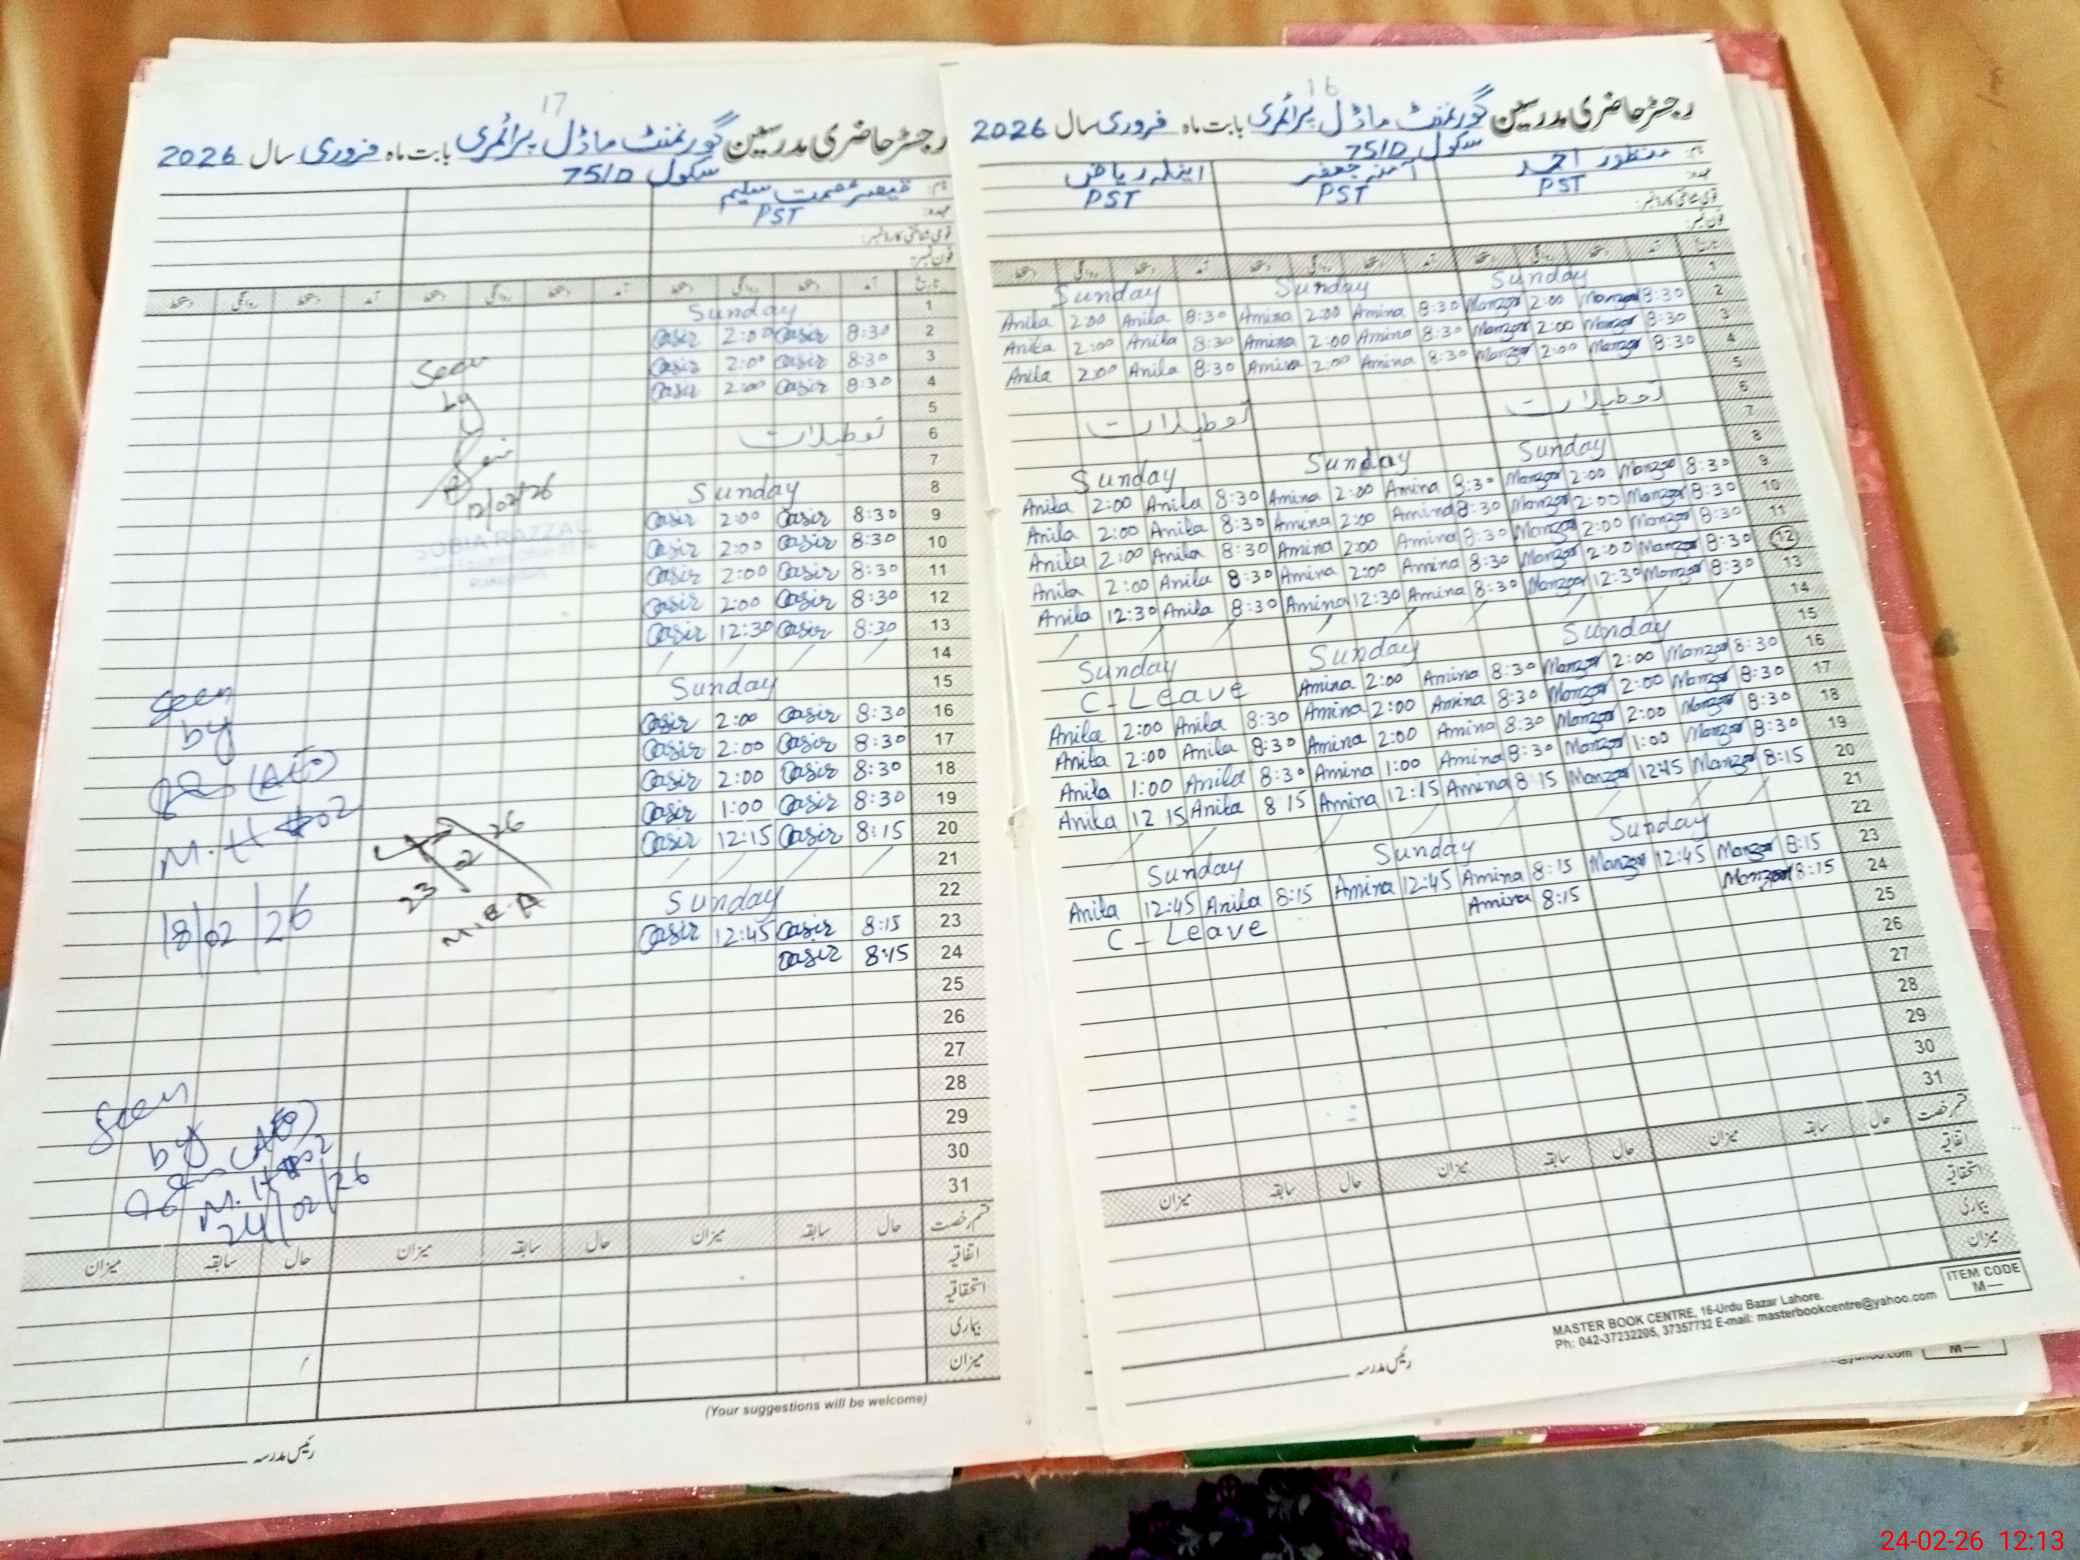 17
رجسٹر حاضری مدرسین گورنمنٹ ماڈل پرائمری بابت ماہ فروری سال 2026
سکول 75/D
نام: قیصر عصمت سلیم
عہدہ: PST
قومی شناختی کارڈ نمبر:
فون نمبر:
تاریخ آمد دستخط روانگی دستخط آمد دستخط روانگی دستخط
1 Sunday
2 8:30 Qasir 2:00 Qasir
3 8:30 Qasir 2:00 Qasir
4 8:30 Qasir 2:00 Qasir
5
6 تعطیلات
7
8 Sunday
9 8:30 Qasir 2:00 Qasir
10 8:30 Qasir 2:00 Qasir
11 8:30 Qasir 2:00 Qasir
12 8:30 Qasir 2:00 Qasir
13 8:30 Qasir 12:30 Qasir
14
15 Sunday
16 8:30 Qasir 2:00 Qasir
17 8:30 Qasir 2:00 Qasir
18 8:30 Qasir 2:00 Qasir
19 8:30 Qasir 1:00 Qasir
20 8:15 Qasir 12:15 Qasir
21
22 Sunday
23 8:15 Qasir 12:45 Qasir
24 8:15 Qasir
25
26
27
28
29
30
31
قسم رخصت حال سابقہ میزان حال سابقہ میزان حال سابقہ میزان
اتفاقیہ
استحقاقیہ
بیماری
میزان
(Your suggestions will be welcome)
رئیس مدرسہ
Seen
by
12/02/26
SOBIA RAZZAQ
Seen
by
(AEO)
M.H 02
18/02/26
23 2 26
M.E.A
Seen
by (AEO)
M.H 02
24/02/26
16
رجسٹر حاضری مدرسین گورنمنٹ ماڈل پرائمری بابت ماہ فروری سال 2026
سکول 75/D
نام: منظور احمد آمنہ جعفر اینلہ ریاض
عہدہ: PST PST PST
قومی شناختی کارڈ نمبر:
فون نمبر:
تاریخ آمد دستخط روانگی دستخط آمد دستخط روانگی دستخط آمد دستخط روانگی دستخط
1 Sunday Sunday Sunday
2 8:30 Manzoor 2:00 Manzoor 8:30 Amina 2:00 Amina 8:30 Anila 2:00 Anila
3 8:30 Manzoor 2:00 Manzoor 8:30 Amina 2:00 Amina 8:30 Anila 2:00 Anila
4 8:30 Manzoor 2:00 Manzoor 8:30 Amina 2:00 Amina 8:30 Anila 2:00 Anila
5
6 تعطیلات تعطیلات
7
8 Sunday Sunday Sunday
9 8:30 Manzoor 2:00 Manzoor 8:30 Amina 2:00 Amina 8:30 Anila 2:00 Anila
10 8:30 Manzoor 2:00 Manzoor 8:30 Amina 2:00 Amina 8:30 Anila 2:00 Anila
11 8:30 Manzoor 2:00 Manzoor 8:30 Amina 2:00 Amina 8:30 Anila 2:00 Anila
12 8:30 Manzoor 2:00 Manzoor 8:30 Amina 2:00 Amina 8:30 Anila 2:00 Anila
13 8:30 Manzoor 12:30 Manzoor 8:30 Amina 12:30 Amina 8:30 Anila 12:30 Anila
14
15 Sunday Sunday Sunday
16 8:30 Manzoor 2:00 Manzoor 8:30 Amina 2:00 Amina C-Leave
17 8:30 Manzoor 2:00 Manzoor 8:30 Amina 2:00 Amina 8:30 Anila 2:00 Anila
18 8:30 Manzoor 2:00 Manzoor 8:30 Amina 2:00 Amina 8:30 Anila 2:00 Anila
19 8:30 Manzoor 1:00 Manzoor 8:30 Amina 1:00 Amina 8:30 Anila 1:00 Anila
20 8:15 Manzoor 12:45 Manzoor 8:15 Amina 12:15 Amina 8:15 Anila 12:15 Anila
21
22 Sunday Sunday Sunday
23 8:15 Manzoor 12:45 Manzoor 8:15 Amina 12:45 Amina 8:15 Anila 12:45 Anila
24 8:15 Manzoor 8:15 Amina C-Leave
25
26
27
28
29
30
31
قسم رخصت حال سابقہ میزان حال سابقہ میزان حال سابقہ میزان
اتفاقیہ
استحقاقیہ
بیماری
میزان
ITEM CODE
M—
MASTER BOOK CENTRE, 16-Urdu Bazar Lahore.
Ph: 042-37232205, 37357732 E-mail: masterbookcentre@yahoo.com
رئیس مدرسہ
M—
24-02-26 12:13